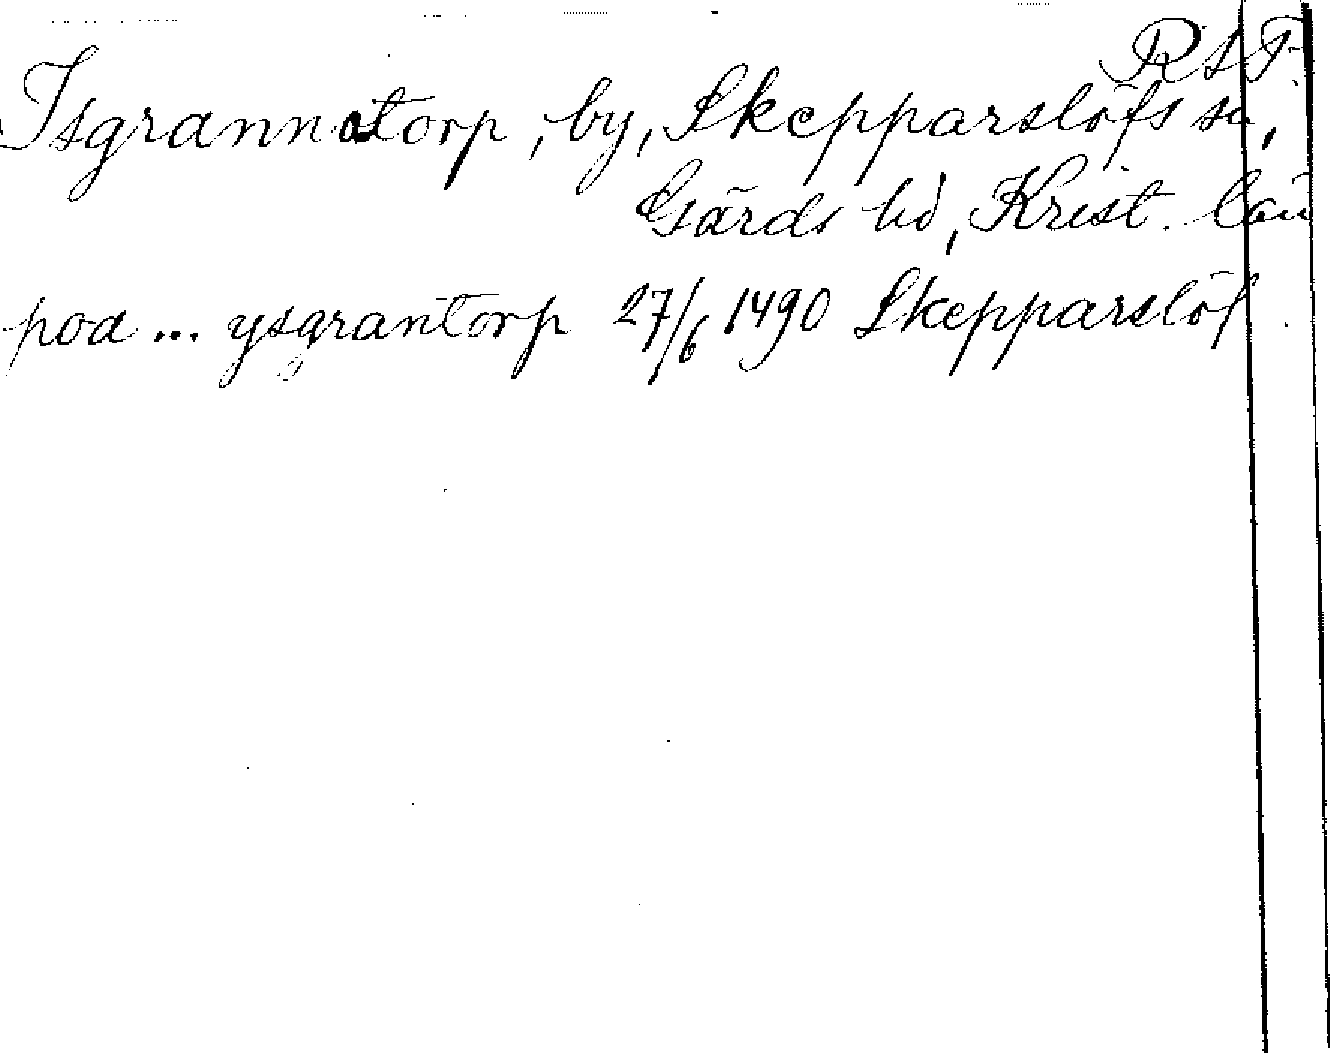 R S F.
Isgrannatorp, by, Skepparslöfs sn,
Gärds hd, Krist. län
poa ... ysgrantorp 27/6 1490 Skepparslöf.